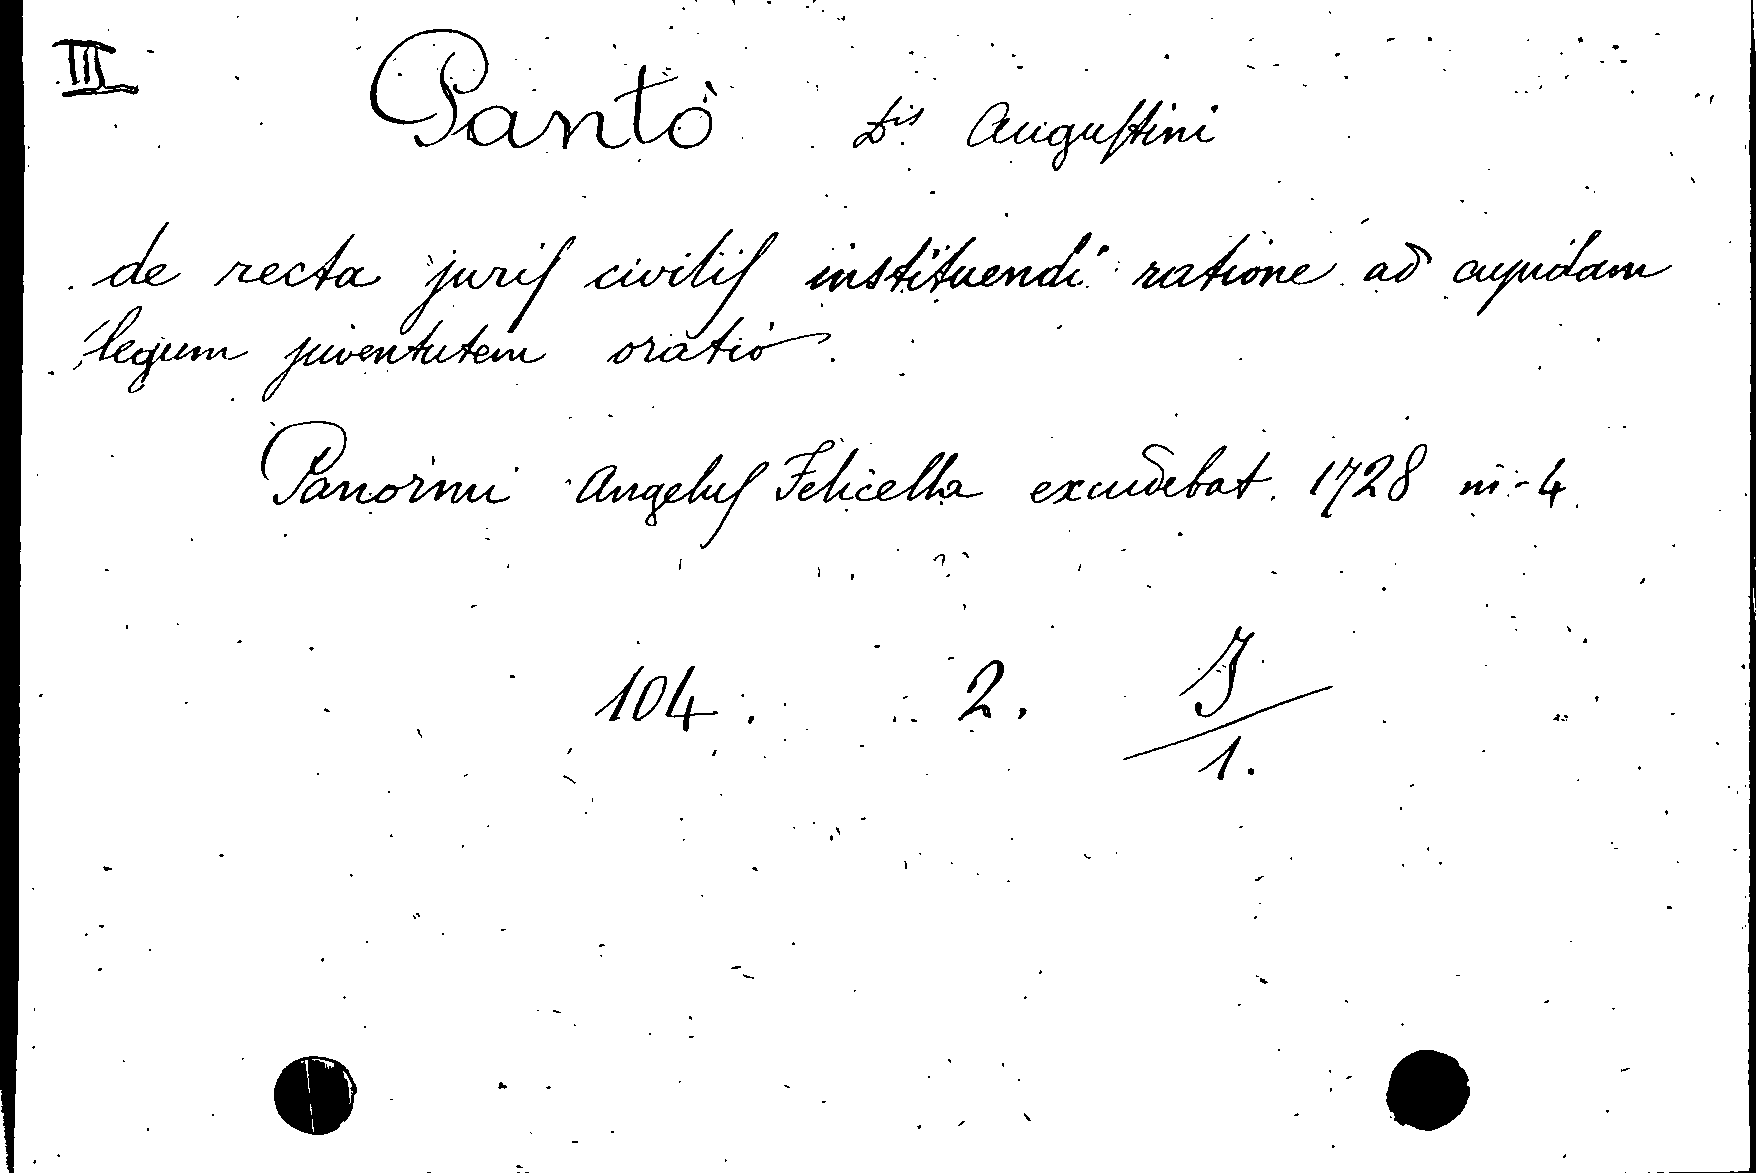 III
Pantò D.is Augustini
de recta juris civilis instituendi ratione ad cupidam
legum juventutem oratio
Panormi Angelus Felicella excudebat. 1728 in-4
104. 2. J
1.